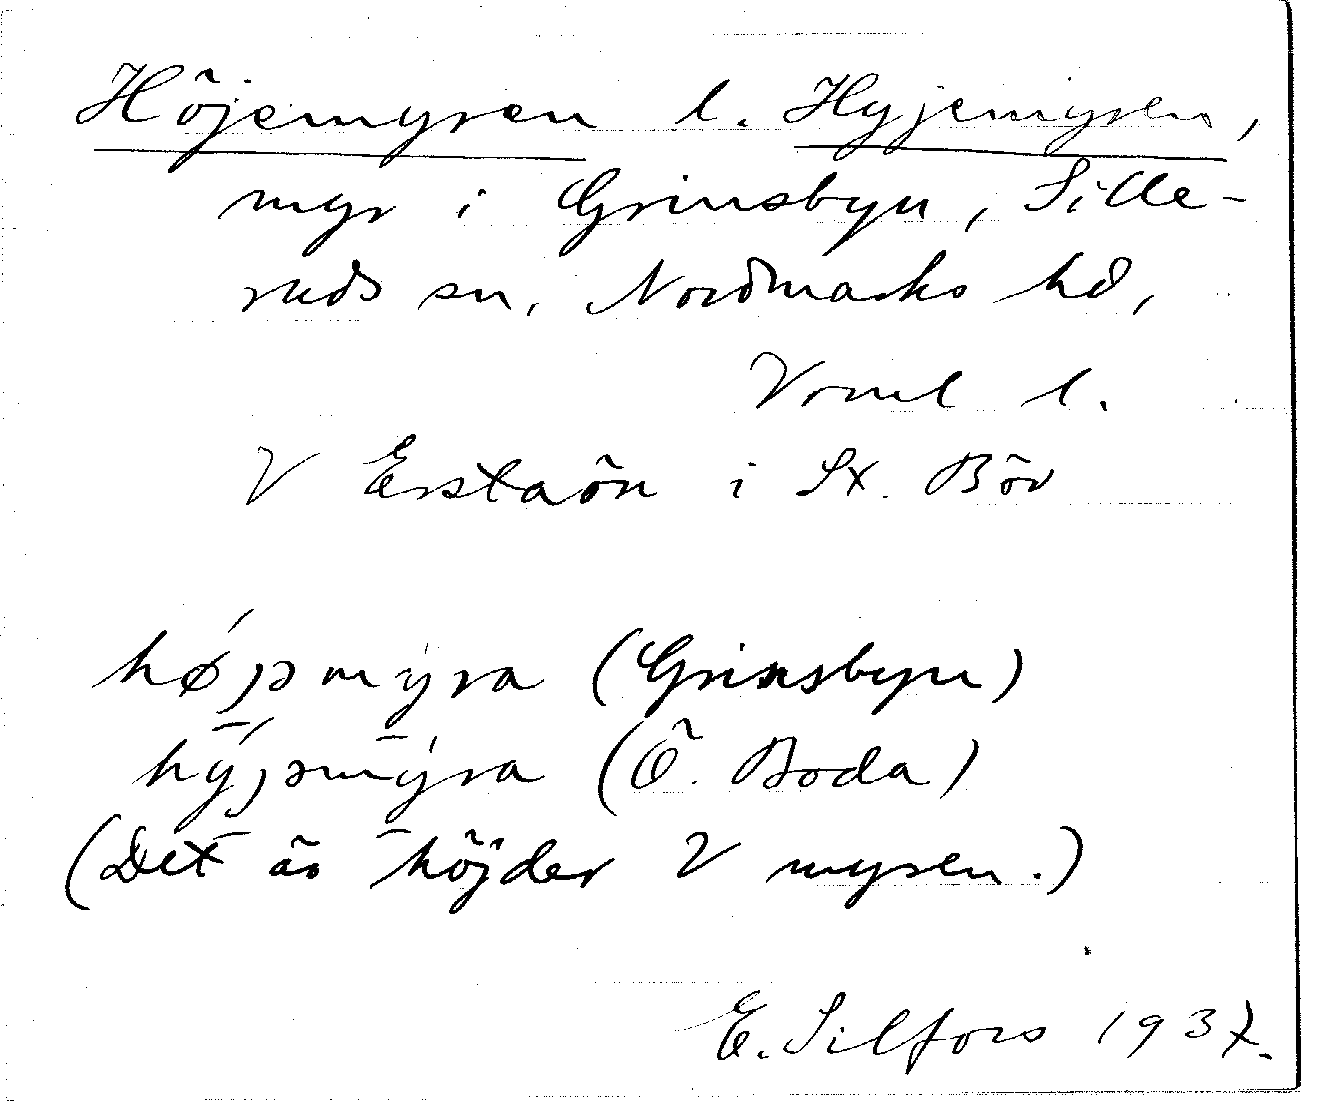 Höjemyren l. Hyjemyren,
myr i Grinsbyn, Sille-
ruds sn, Nordmarks hd,
Vrml l.
V Erstaön i St. Bör
højəmyra (Grinsbyn)
hyjəmyra (Ö. Boda)
(Det är höjder V myren.)
E. Silfors 1937.